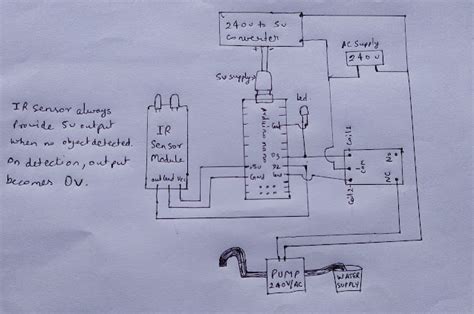 240v to 5v
converter
AC Supply
240v
5v supply
led
IR Sensor always
Provide 5v output
when no object detected.
On detection, output
becomes 0v.
IR
Sensor
Module
out Gnd Vcc
arduino nano
Gnd
D3
+5v
D2
Gnd
Gnd
Coil1
Com
Coil2
NO
NC
PUMP
240V/AC
WATER
SUPPLY